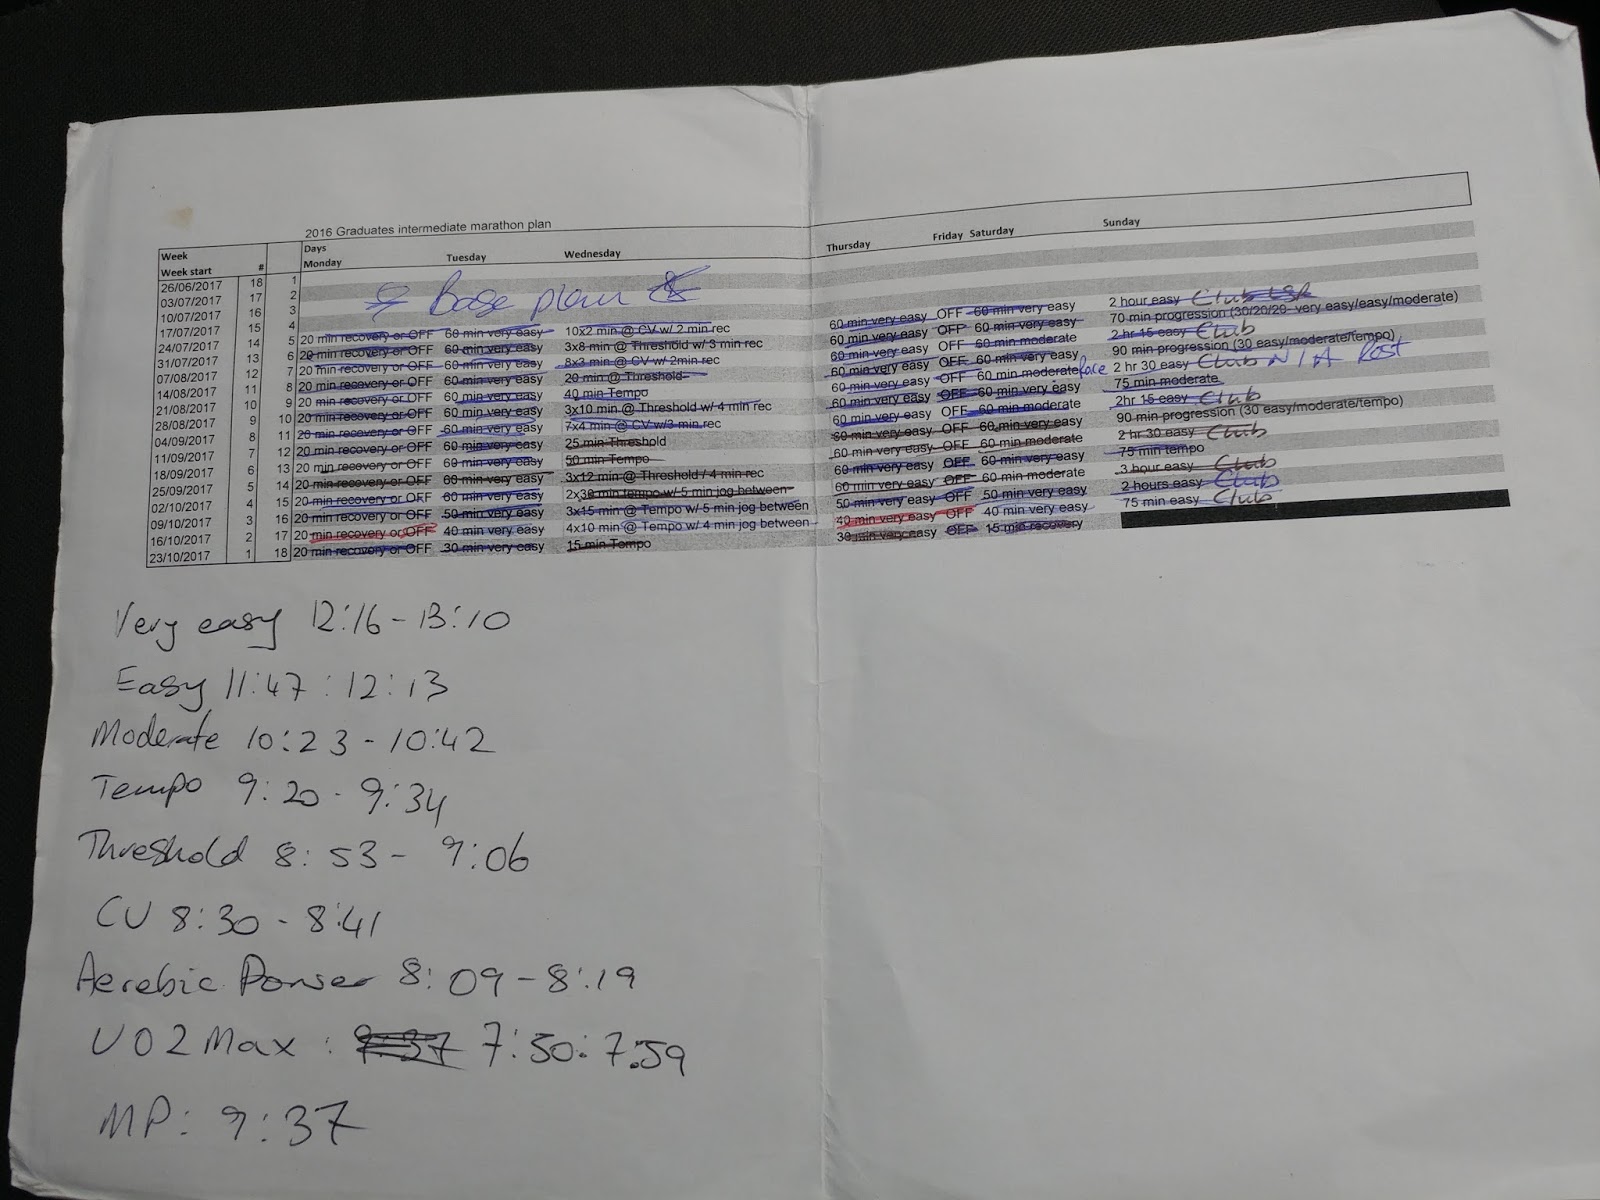 2016 Graduates intermediate marathon plan
Week Days
Week start # Monday Tuesday Wednesday Thursday Friday Saturday Sunday
26/06/2017 18 1
03/07/2017 17 2 Base plan
10/07/2017 16 3
17/07/2017 15 4
24/07/2017 14 5 20 min recovery or OFF 60 min very easy 10x2 min @ CV w/ 2 min rec 60 min very easy OFF 60 min very easy 2 hour easy Club LSR
31/07/2017 13 6 20 min recovery or OFF 60 min very easy 3x8 min @ Threshold w/ 3 min rec 60 min very easy OFF 60 min very easy 70 min progression (30/20/20- very easy/easy/moderate)
07/08/2017 12 7 20 min recovery or OFF 60 min very easy 8x3 min @ CV w/ 2min rec 60 min very easy OFF 60 min moderate 2 hr 15 easy Club
14/08/2017 11 8 20 min recovery or OFF 60 min very easy 20 min @ Threshold 60 min very easy OFF 60 min very easy 90 min progression (30 easy/moderate/tempo)
21/08/2017 10 9 20 min recovery or OFF 60 min very easy 40 min Tempo 60 min very easy OFF 60 min moderate 2 hr 30 easy Club N/A
28/08/2017 9 10 20 min recovery or OFF 60 min very easy 3x10 min @ Threshold w/ 4 min rec 60 min very easy OFF 60 min very easy 75 min moderate
04/09/2017 8 11 20 min recovery or OFF 60 min very easy 7x4 min @ CV w/3 min rec 60 min very easy OFF 60 min moderate 2hr 15 easy Club
11/09/2017 7 12 20 min recovery or OFF 60 min very easy 25 min Threshold 60 min very easy OFF 60 min very easy 90 min progression (30 easy/moderate/tempo)
18/09/2017 6 13 20 min recovery or OFF 60 min very easy 50 min Tempo 60 min very easy OFF 60 min moderate 2 hr 30 easy Club
25/09/2017 5 14 20 min recovery or OFF 60 min very easy 3x12 min @ Threshold / 4 min rec 60 min very easy OFF 60 min very easy 75 min tempo
02/10/2017 4 15 20 min recovery or OFF 60 min very easy 2x30 min tempo w/ 5 min jog between 60 min very easy OFF 60 min moderate 3 hour easy Club
09/10/2017 3 16 20 min recovery or OFF 50 min very easy 3x15 min @ Tempo w/ 5 min jog between 50 min very easy OFF 50 min very easy 2 hours easy Club
16/10/2017 2 17 20 min recovery or OFF 40 min very easy 4x10 min @ Tempo w/ 4 min jog between 40 min very easy OFF 40 min very easy 75 min easy Club
23/10/2017 1 18 20 min recovery or OFF 30 min very easy 15 min Tempo 30 min very easy OFF 15 min recovery
Very easy 12:16 - 13:10
Easy 11:47 : 12:13
Moderate 10:23 - 10:42
Tempo 9:20 - 9:34
Threshold 8:53 - 9:06
CV 8:30 - 8:41
Aerebic Power 8:09 - 8:19
VO2Max : 9:37 7:50:7:59
MP: 9:37